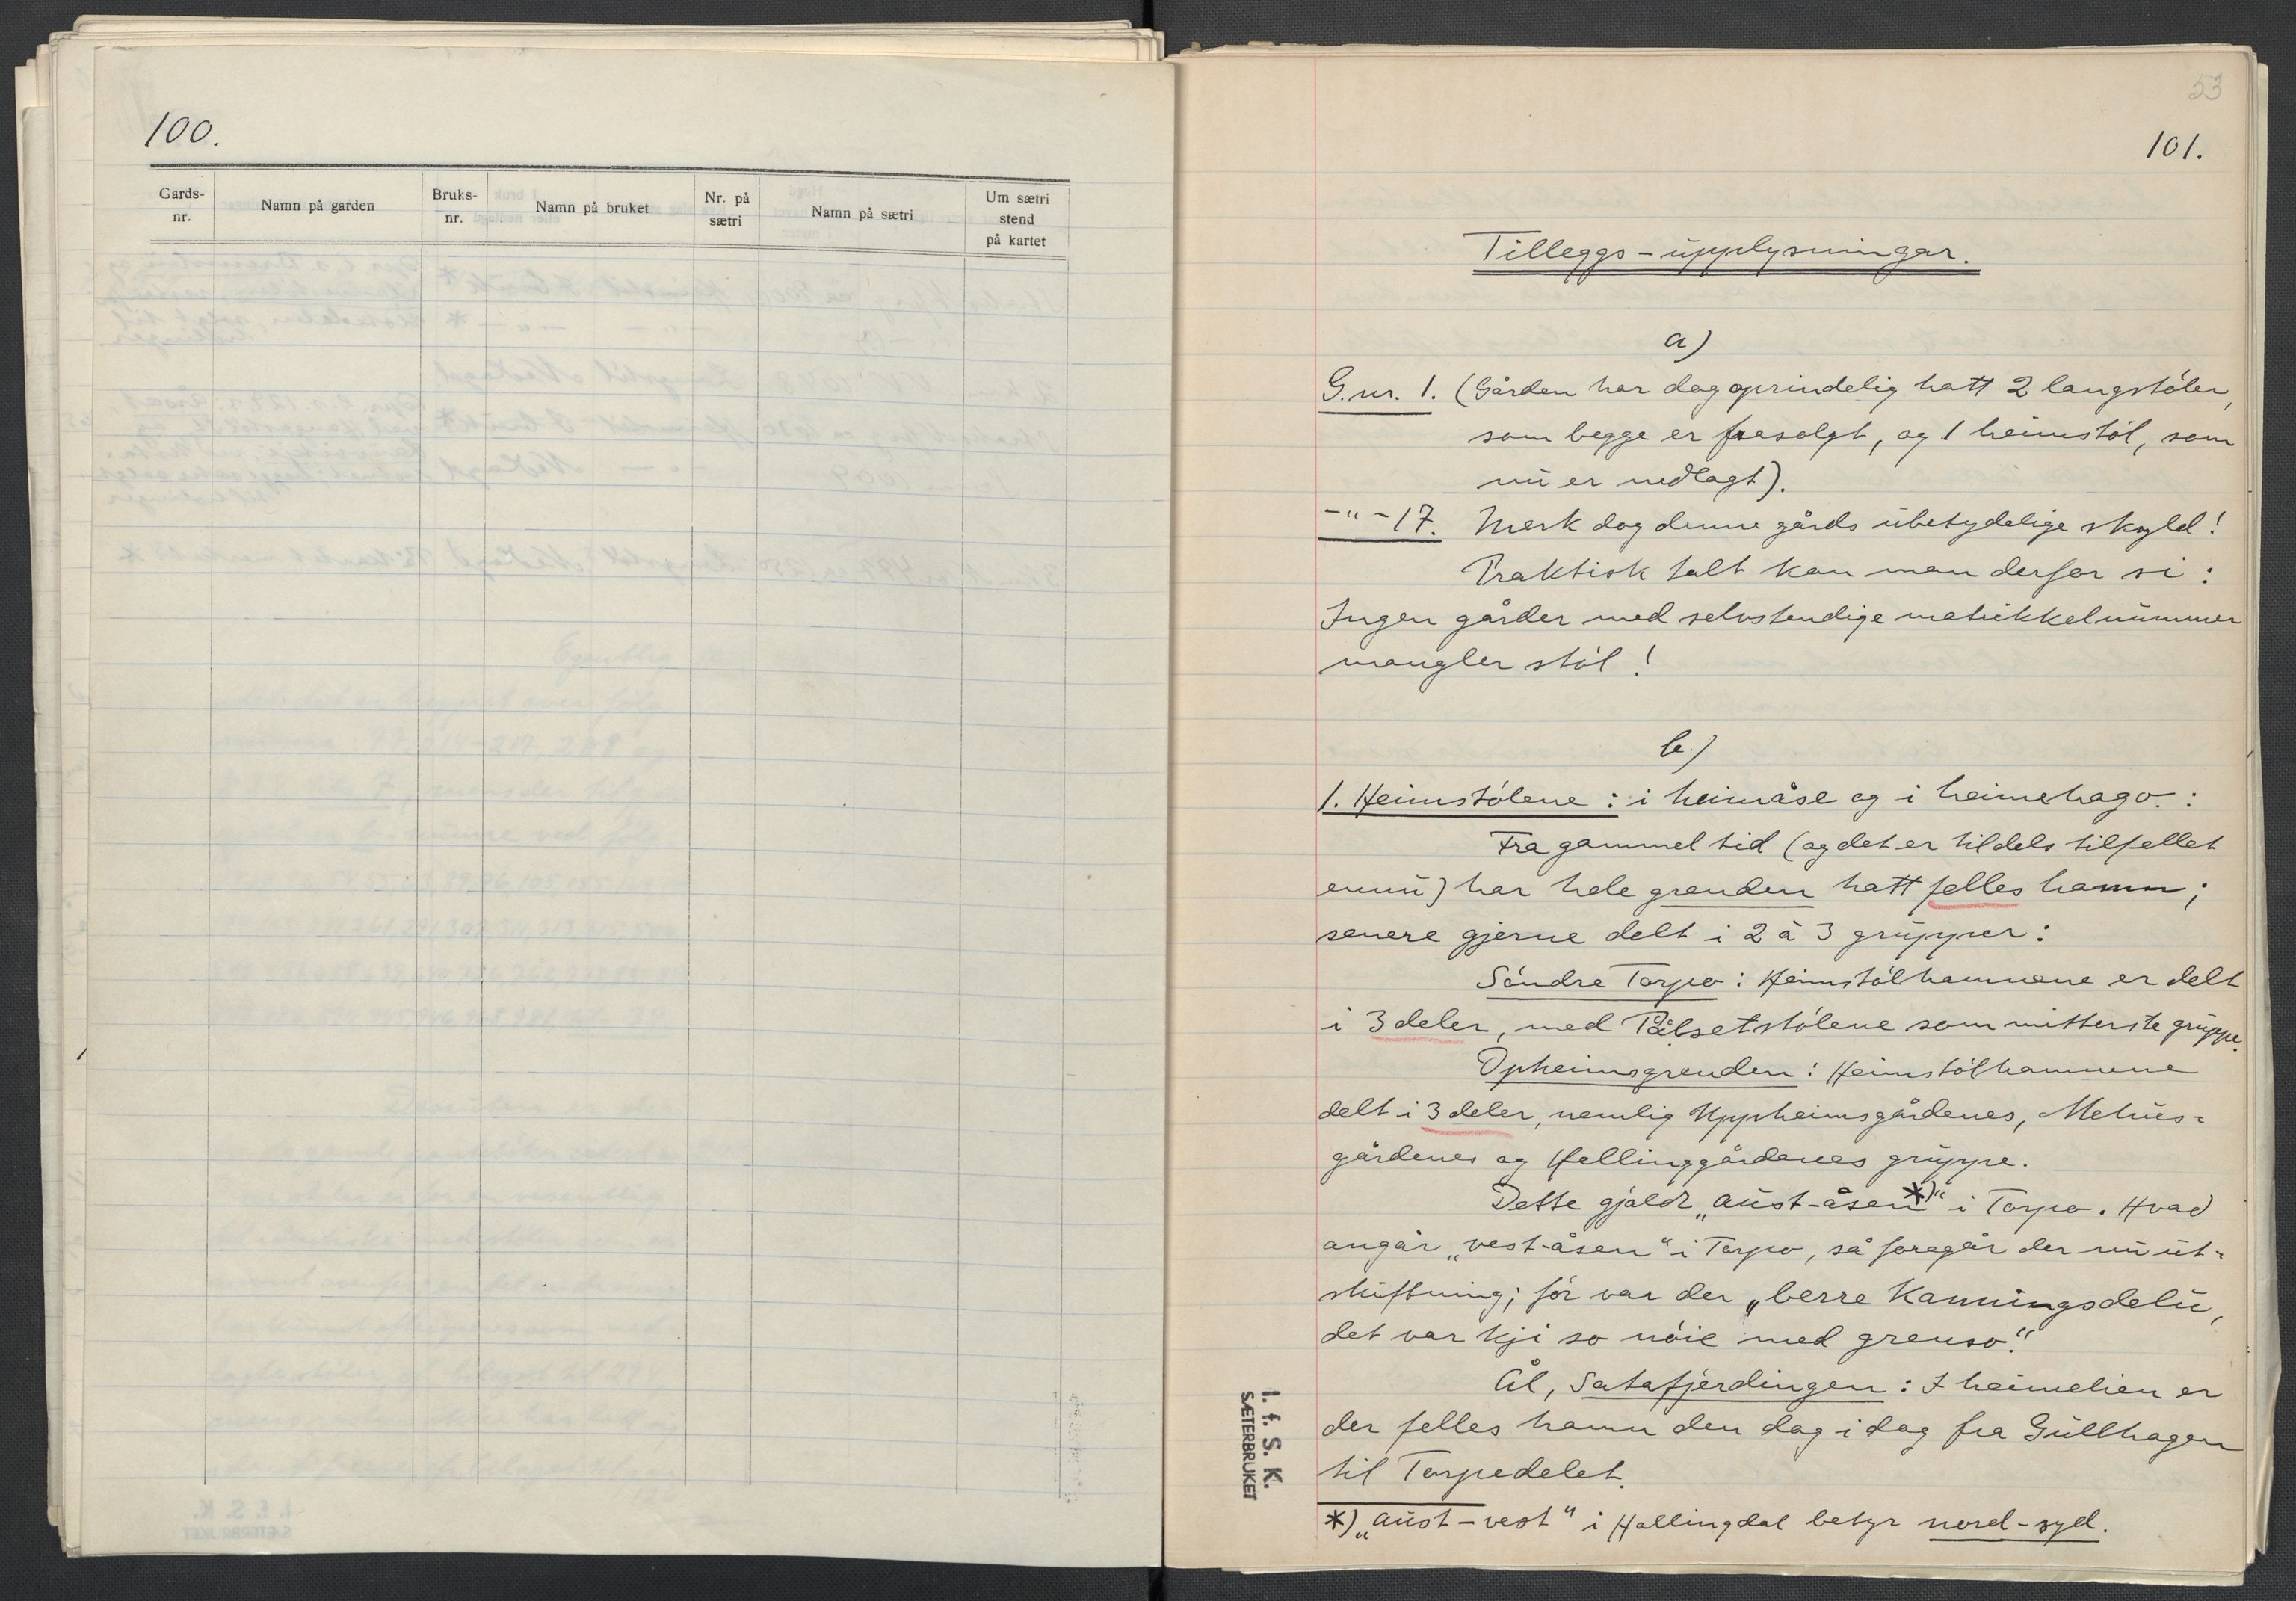 100.
Gards-
nr.
Namn på garden
Bruks-
nr.
Namn på bruket
Nr. på
sætri
Namn på sætri
Um sætri
stend
på kartet
53
101.
Tilleggs-upplysningar.
a)
G.nr. 1. (Gården har dog oprindelig hatt 2 langstöler,
som begge er frasolgt, og 1 heimstöl, som
nu er nedlagt).
-"-17. Merk dog denne gårds ubetydelige skyld!
Praktisk talt kan man derfor si:
Ingen gårder med selvstendige matrikkelnummer
mangler stöl!
b.)
1. Heimstölene: i heimåse og i heimehago.:
Fra gammel tid (og det er tildels tilfellet
ennu) har hele grenden hatt felles hamn;
senere gjerne delt i 2 à 3 grupper:
Söndre Torpo: Heimstölhamnene er delt
i 3 deler, med Pålsetstölene som mitterste gruppe.
Opheimsgrenden: Heimstölhamnene
delt i 3 deler, nemlig Uppheimsgårdenes, Mehus-
gårdenes og Hellinggårdenes gruppe.
Dette gjeldr „aust-åsen*)“ i Torpo. Hvad
angår „vest-åsen“ i Torpo, så foregår der nu ut-
skiftning; för var der „berre Kanningsdelu,
det var kji so nöie med grenso.“
Ål, Satafjerdingen: I heimelien er
der felles hamn den dag i dag fra Gullhagen
til Torpedelet.
*) „aust-vest“ i Hallingdal betyr nord-syd.
I. f. S. K.
SÆTERBRUKET